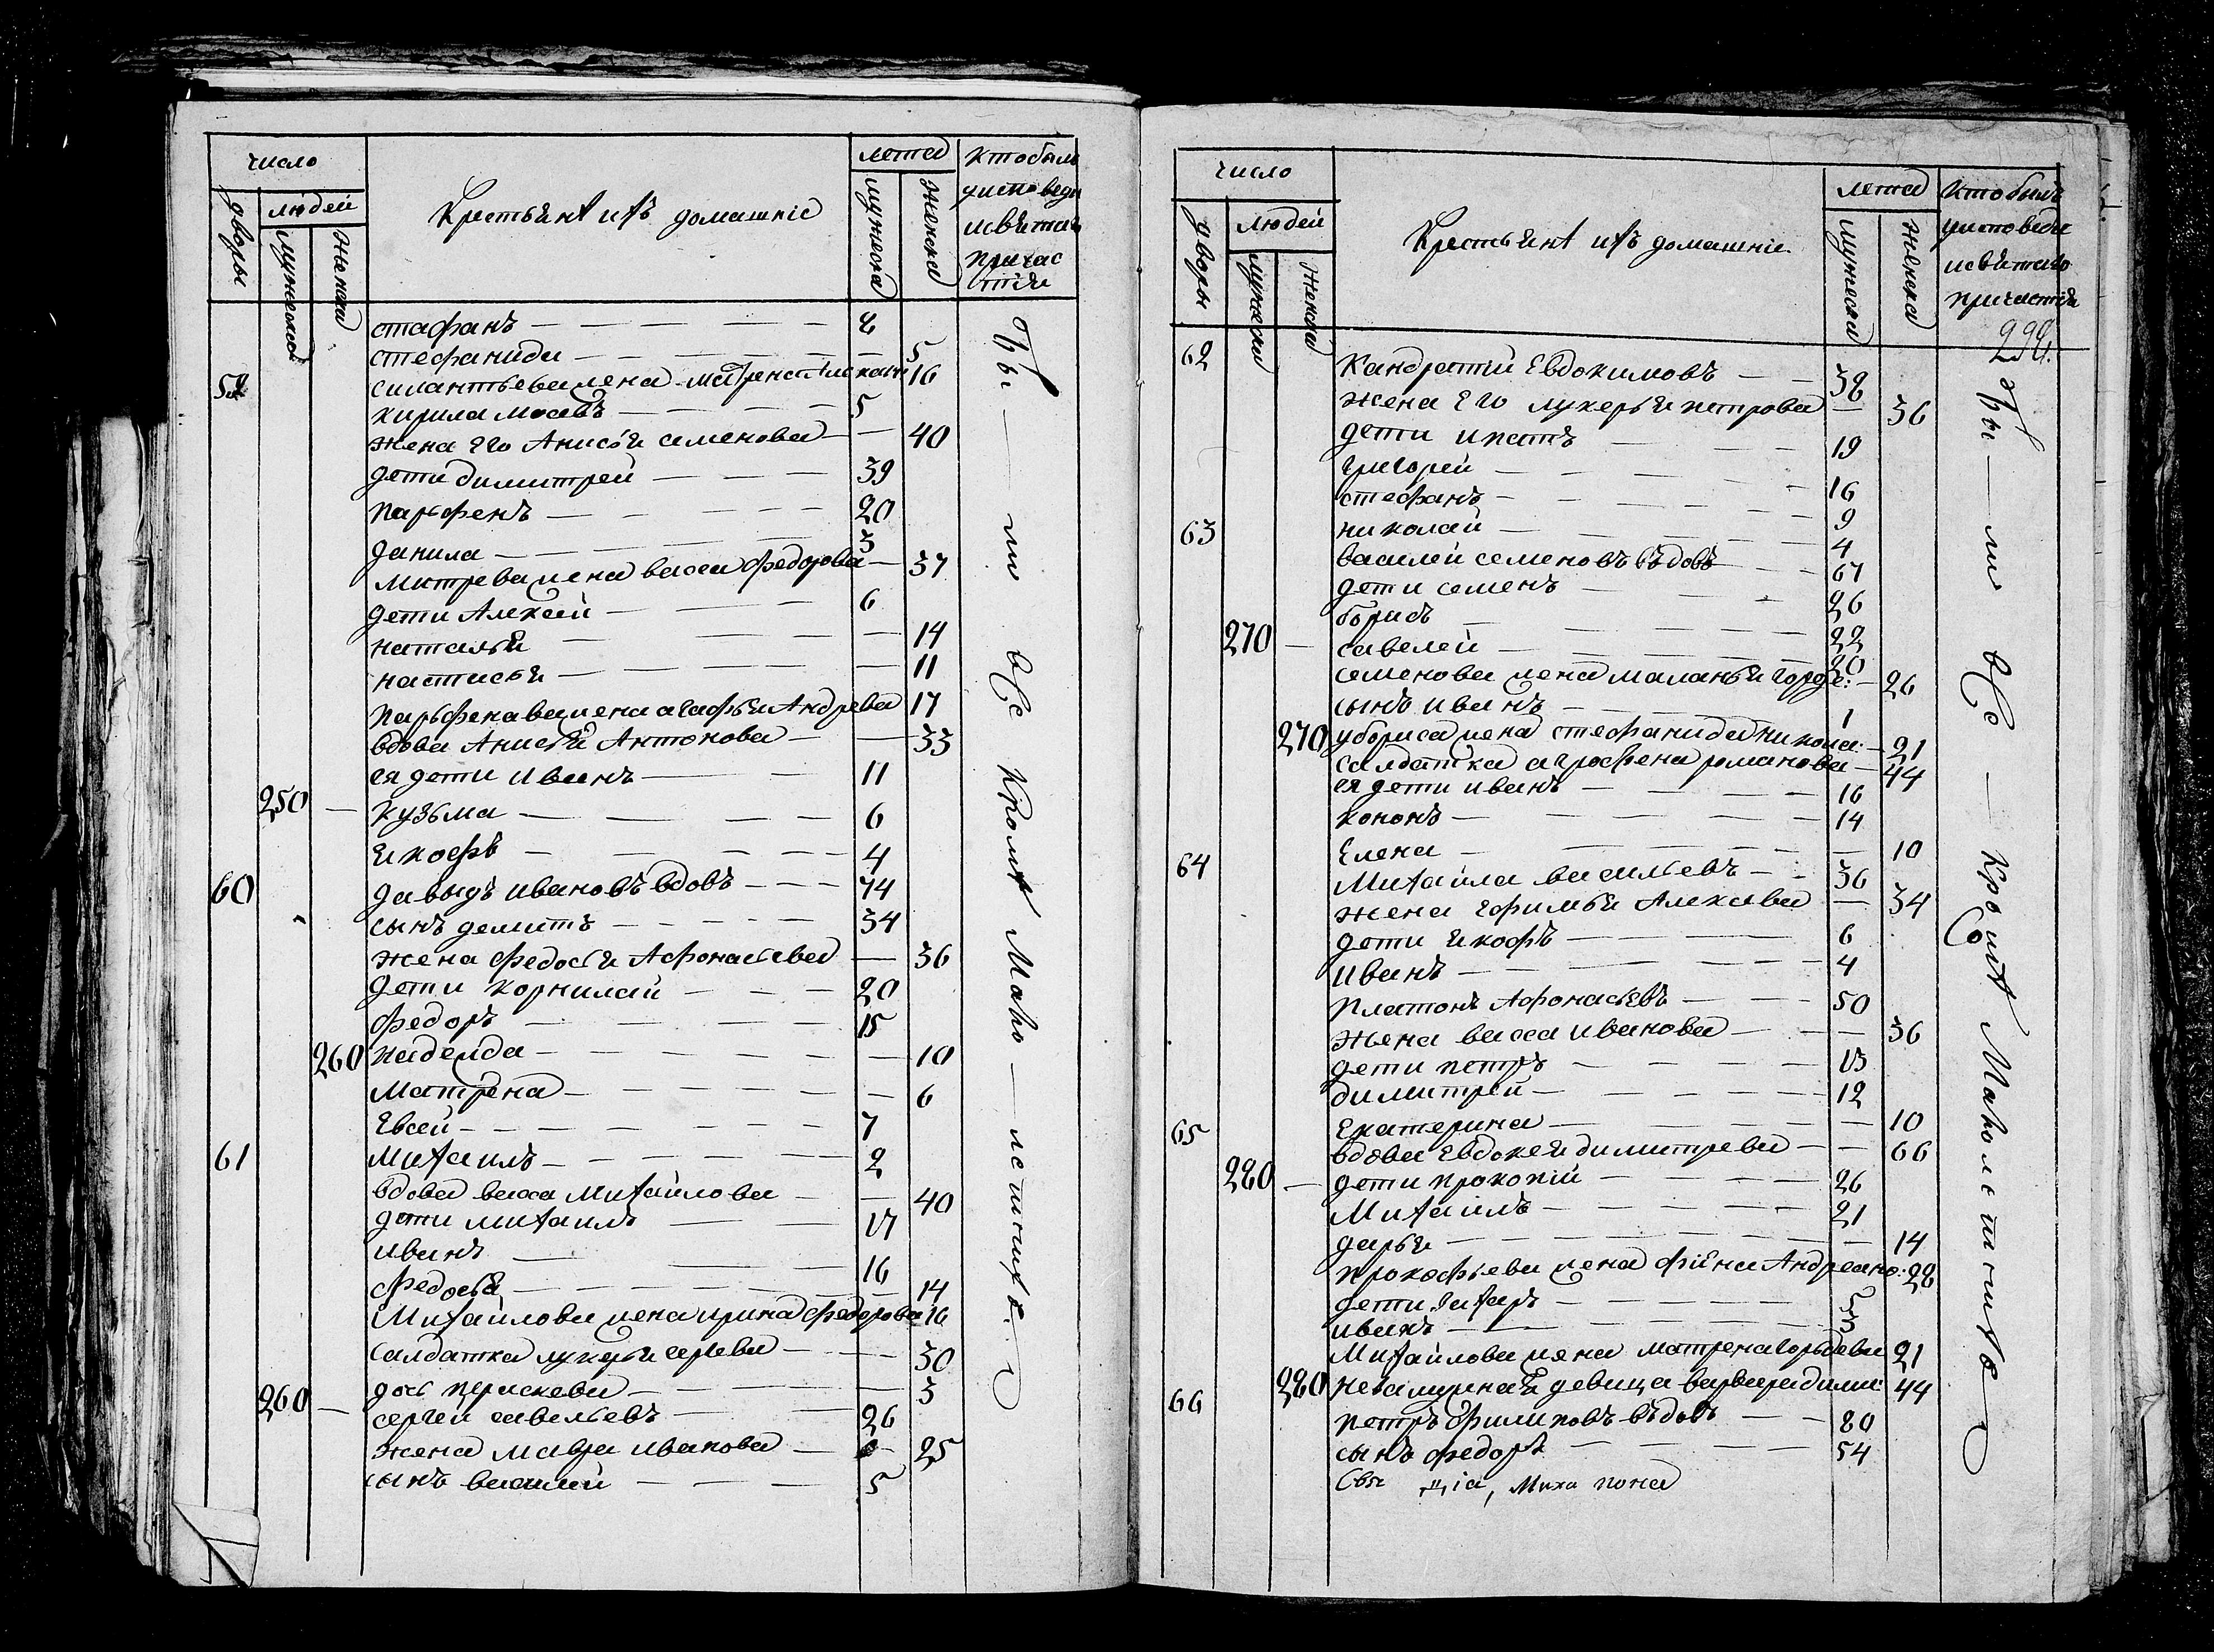 число
летта
кто былъ
дворы
людей
мужеска
женска
Крестьянѣ ихъ домашніе
мужеска
женска
у исповеди
и свѣтаго
причас
тія
стафанъ — 8
стефанида — 5
58 силантьева жена матрена 16
кирила 5
жена его Анисья семенова — 40
дети димитрей — 39
парфенъ — 20
данила — 3
митрева жена васса федорова — 37
дети Алексей — 6
наталья — 14
настасья — 11
парьфенава жена агафья Андрева 17
вдова Анисья Антонова — 33
ея дети иванъ — 11
250 — кузьма — 6
якофъ — 4
60 давыдъ ивановъ вдовъ — 74
сынъ демитъ — 34
жена федосья Афонасьева — 36
дети корнилай — 20
федоръ — 15
260 надежда — 10
матрена — 6
Евсей — 7
61 михаилъ — 2
вдова васса михайлова — 40
дети михаилъ — 17
иванъ — 16
федосья — 14
Михайлова жена ирина федорова 16
салдатка лукерья сергева — 30
дочь прасковья — 3
260 — сергей савельевъ — 26
жена мавра иванова — 25
сынъ василей — 5
всѣ кромѣ мало — летнихъ
число
летта
кто былъ
дворы
людей
мужеска
женска
Крестьянѣ ихъ домашніе
мужеска
женска
у исповеди
и свѣтаго
причастія
62 Кандратій Евдокимовъ — 38
жена его лукерья петрова — 36
дети ипатъ — 19
григорей — 16
стефанъ — 9
63 николай — 4
василей семеновъ въдовъ — 67
дети семенъ — 26
борисъ — 22
270 — савелей — 20
семенова жена маланья горде: — 26
сынъ иванъ — 1
270 у бориса жена стефанида никола: — 21
салдатка агрофена романова — 44
ея дети иванъ — 16
кононъ — 14
Елена — 10
64 Михайла васильевъ — 36
жена ефимья Алексева — 34
дети якофъ — 6
иванъ — 4
платонъ Афонасьевъ — 50
жена васса иванова — 36
дети петръ — 15
димитрей — 12
65 Екатерина — 10
вдова Евдокея димитрева — 66
280 — дети прокопій — 26
Михаилъ — 21
дарья — 14
прокофьева жена Андреано: 28
дети захаръ — 5
иванъ — 3
Михайлова жена матрена гордева 21
280 незамужная девица варвара дими: 44
66 петръ филиповъ въдовъ — 80
сынъ федоръ — 54
всѣ — кромѣ малолетнихъ